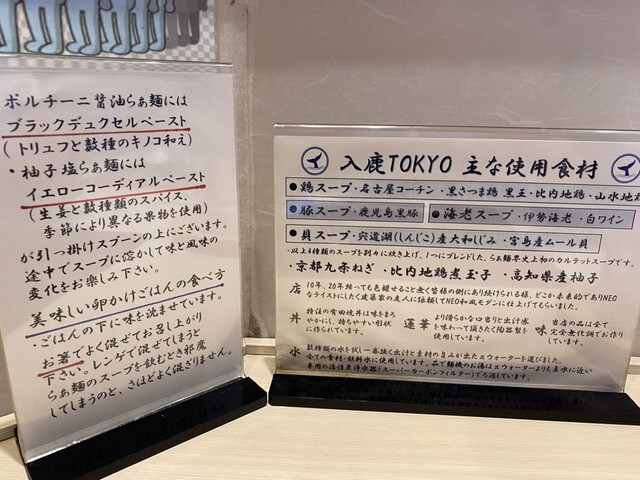 ポルチーニ醤油らぁ麺には
ブラックデュクセルペースト
(トリュフと数種のキノコ和え)
・柚子塩らぁ麺には
イエローコーディアルペースト
(生姜と数種類のスパイス、
季節により異なる果物を使用)
が引っ掛けスプーンの上にございます。
途中でスープに溶かして味と風味の
変化をお楽しみ下さい。
美味しい卵かけごはんの食べ方
・ごはんの下に味を沈ませています。
お箸でよく混ぜてお召し上がり
下さい。レンゲで混ぜてしまうと
らぁ麺のスープを飲むとき邪魔
してしまうのと、さほどよく混ざりません。
入鹿TOKYO 主な使用食材
●鶏スープ・名古屋コーチン・黒さつま鶏 黒王・比内地鶏・山水地鶏
●豚スープ・鹿児島黒豚
●海老スープ・伊勢海老・白ワイン
●貝スープ・宍道湖(しんじこ)産大和しじみ・宮島産ムール貝
・以上4種類のスープを別々に炊き上げ、1つにブレンドした、らぁ麺界史上初のカルテットスープです。
・京都九条ねぎ ・比内地鶏煮玉子 ・高知県産柚子
店 10年、20年経っても色褪せること無く皆様の側にあり続けられる様、どこか未来的でありNEO
なテイストにしたく建築家の友人に依頼してNEO和風モダンに仕上げてもらいました。
丼 特注の有田焼丼は味をまろ
やかにし、持ちやすい形状
に作られています。
蓮華 より滑らかな口当りと出汁感
を味わって頂きたく陶器製を
使用しています。
味 当店の品は全て
完全無化調でお作り
しています。
水 数種類の水を試し一番強く出汁と素材の旨みが出たスウォーターを選びました。
全ての食材・飲料水に使用しています。茹で麺機のお湯はスウォーターよりも真水に近い
専用の活性炭浄水器(スーパーカーボンフィルター)でろ過しています。